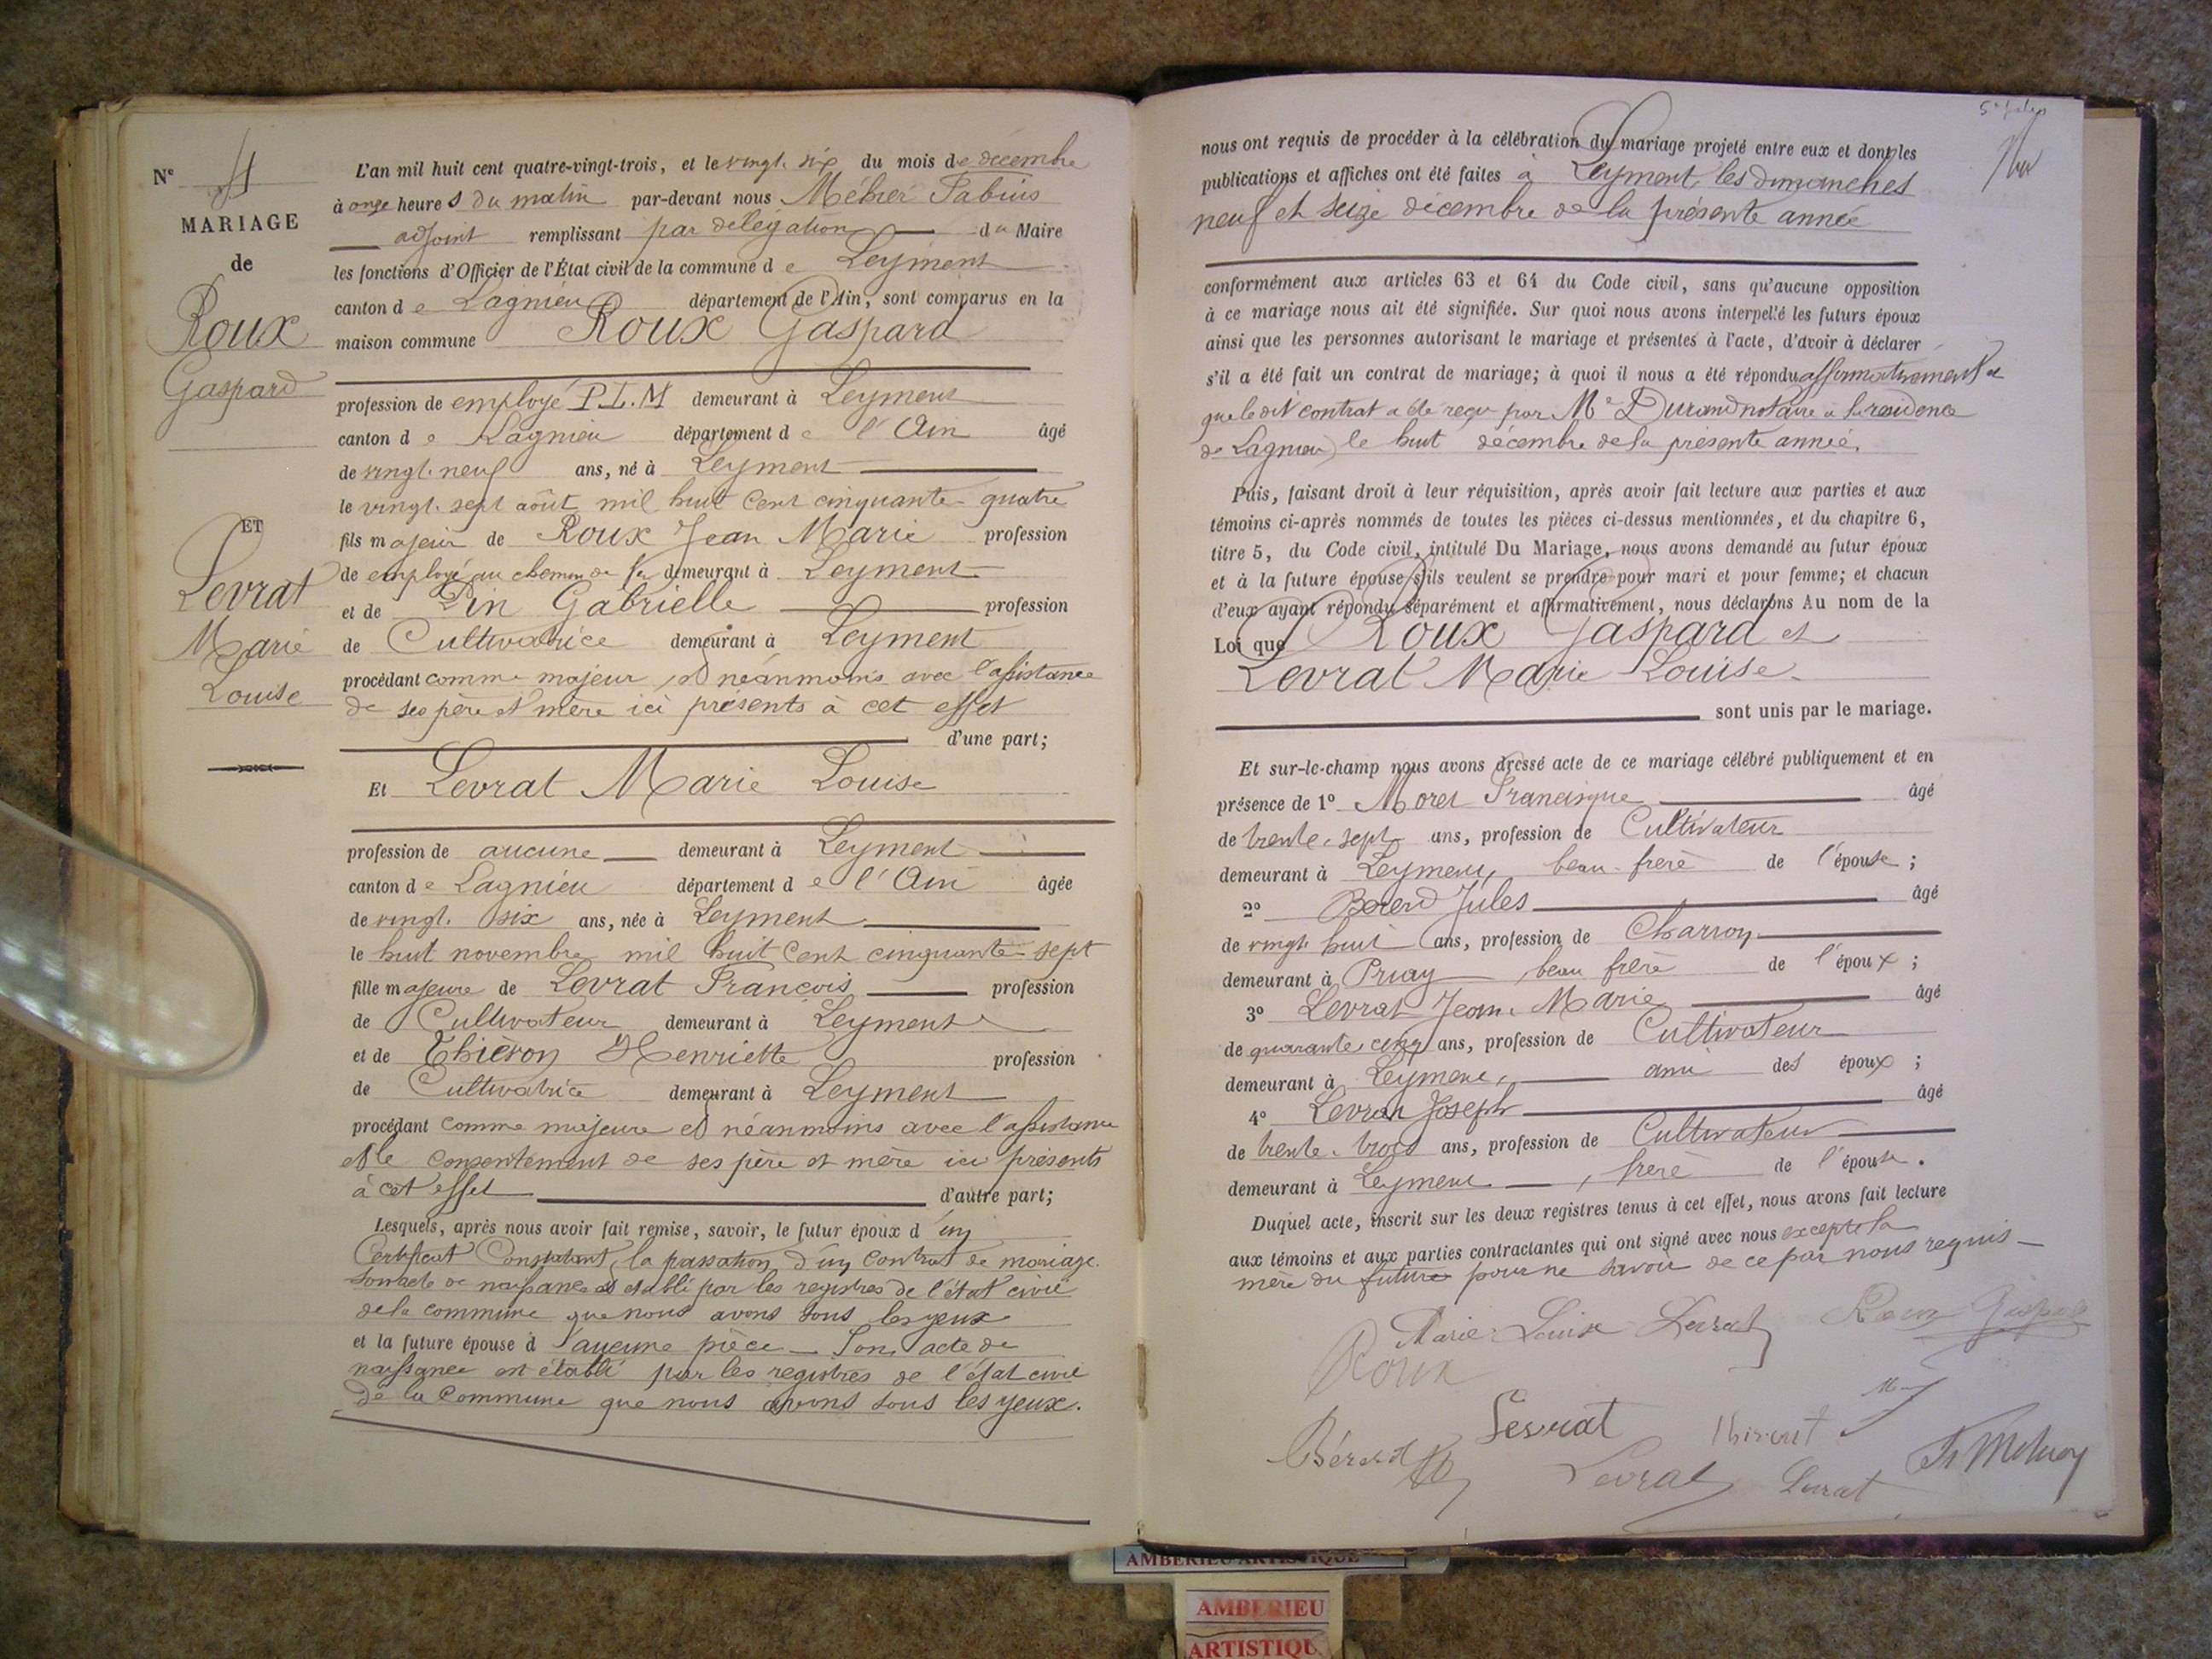 N° 4
MARIAGE
de
Roux
Gaspard
ET
Levrat
Marie
Louise
L'an mil huit cent quatre-vingt-trois, et le vingt six du mois de décembre
à onze heures du matin par-devant nous Méhier Fabius
adjoint remplissant par délégation du Maire
les fonctions d'Officier de l'État civil de la commune de Leyment
canton de Lagnieu département de l'Ain, sont comparus en la
maison commune Roux Gaspard
profession de employé P.L.M demeurant à Leyment
canton de Lagnieu département de l'Ain âgé
de vingt-neuf ans, né à Leyment
le vingt-sept août mil huit cent cinquante-quatre
fils majeur de Roux Jean Marie profession
de employé au chemin de fer demeurant à Leyment
et de Pin Gabrielle profession
de Cultivatrice demeurant à Leyment
procédant comme majeur et néanmoins avec l'assistance
de ses père et mère ici présents à cet effet
d'une part;
Et Levrat Marie Louise
profession de aucune demeurant à Leyment
canton de Lagnieu département de l'Ain âgée
de vingt-six ans, née à Leyment
le huit novembre mil huit cent cinquante-sept
fille majeure de Levrat François profession
de Cultivateur demeurant à Leyment
et de Henriette profession
de Cultivatrice demeurant à Leyment
procédant comme majeure et néanmoins avec l'assistance
et le consentement de ses père et mère ici présents
à cet effet d'autre part;
Lesquels, après nous avoir fait remise, savoir, le futur époux d'un
Certificat Constatant la passation d'un contrat de mariage.
son acte de naissance est établi par les registres de l'état civil
de la commune que nous avons sous les yeux
et la future épouse d'aucune pièce _ Son acte de
naissance est établi par les registres de l'état civil
de la Commune que nous avons sous les yeux.
nous ont requis de procéder à la célébration du mariage projeté entre eux et dont les
publications et affiches ont été faites à Leyment, les dimanches
neuf et seize décembre de la présente année
conformément aux articles 63 et 64 du Code civil, sans qu'aucune opposition
à ce mariage nous ait été signifiée. Sur quoi nous avons interpellé les futurs époux
ainsi que les personnes autorisant le mariage et présentes à l'acte, d'avoir à déclarer
s'il a été fait un contrat de mariage; à quoi il nous a été répondu affirmativement et
que le dit contrat a été reçu par Me Durand notaire à la résidence
de Lagnieu le huit décembre de la présente année.
Puis, faisant droit à leur réquisition, après avoir fait lecture aux parties et aux
témoins ci-après nommés de toutes les pièces ci-dessus mentionnées, et du chapitre 6,
titre 5, du Code civil, intitulé Du Mariage, nous avons demandé au futur époux
et à la future épouse s'ils veulent se prendre pour mari et pour femme; et chacun
d'eux ayant répondu séparément et affirmativement, nous déclarons Au nom de la
Loi que Roux Gaspard et
Levrat Marie Louise.
sont unis par le mariage.
Et sur-le-champ nous avons dressé acte de ce mariage célébré publiquement et en
présence de 1° Morel Francisque âgé
de trente-sept ans, profession de Cultivateur
demeurant à Leyment, beau-frère de l'épouse;
2° Jules âgé
de vingt-huit ans, profession de Charron
demeurant à Priay beau frère de l'époux;
3° Levrat Jean-Marie âgé
de quarante cinq ans, profession de Cultivateur
demeurant à Leyment, ami des époux;
4° Levrat Joseph âgé
de trente-trois ans, profession de Cultivateur
demeurant à Leyment, frère de l'épouse.
Duquel acte, inscrit sur les deux registres tenus à cet effet, nous avons fait lecture
aux témoins et aux parties contractantes qui ont signé avec nous excepté la
mère du futur pour ne savoir de ce par nous requis _
Marie Louise Levrat Roux Gaspard
Roux
Levrat
Bérard Levrat Levrat
AMBERIEU ARTISTIQUE
AMBERIEU
ARTISTIQU